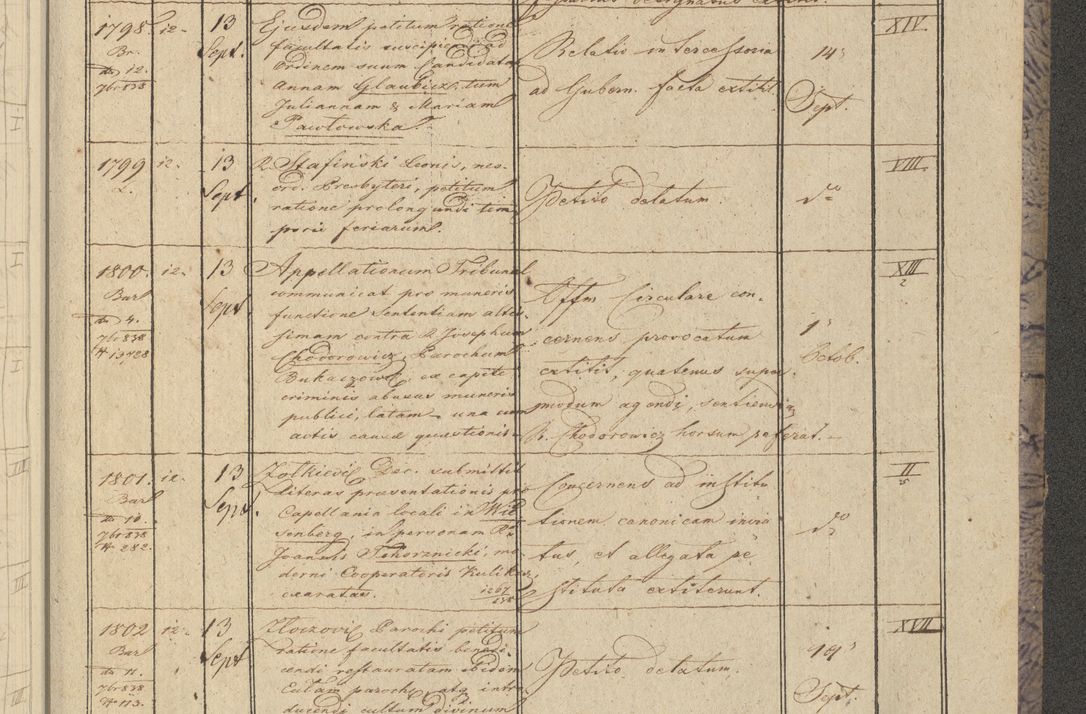 1798. 12. 13 Sept.
Br.
do 12.
7br 838
Ejusdem petitum ratione
facultatis suscipiendi ad
Ordinem suum Candidatas
Annam Glaubicz, tum
Juliannam & Mariam
Pawłowska.
Relatio intercessoria
ad Gubern. facta extitit.
14
Sept.
XIV
1799 12. 13 Sept.
L.
R. Stafiński Leonis, nes-
ord. Presbyteri, petitum
ratione prolongandi tem
poris feriarum.
Petito delatum.
do
VIII
1800. 12. 13 Sept
Bar
do 4.
7br 838
Appellationum Tribunal
communicat pro muneris
functione Sententiam altis
simam contra R. Josephum
Chodorowicz, Parochum
Bukaczow: ex capite
criminis abusus muneris
publici, latam, una cum
actis causæ quæstionis.
Offm Circulare con-
cernens provocatum
extitit, quatenus super
modum agendi,
R. Chodorowicz horsum referat.
1
Octob.
XIII
2
1801. 12. 13 Sept.
Bar
do 10.
7br 838
N 282.
Zołkievi Dec. submittit
literas præsentationis pro
Capellania locali in Wie
senberg, in personam R.
Joannis Tchorznicki, mo-
derni Cooperatoris Kulikov,
exaratas.
1267
838
Concernens ad institu
tionem canonicam invita
tus, et allegata re
stituta extiterunt.
do
II
25
1802 12. 13 Sept
Bar
do 11.
7br 838
N 113.
Zloczovi Parochi petitum
ratione facultatis benedi
cendi restauratam ibidem
Eccłam paroch, atq intro
ducendi cultum divinum
Petito delatum.
19
Sept.
XVII